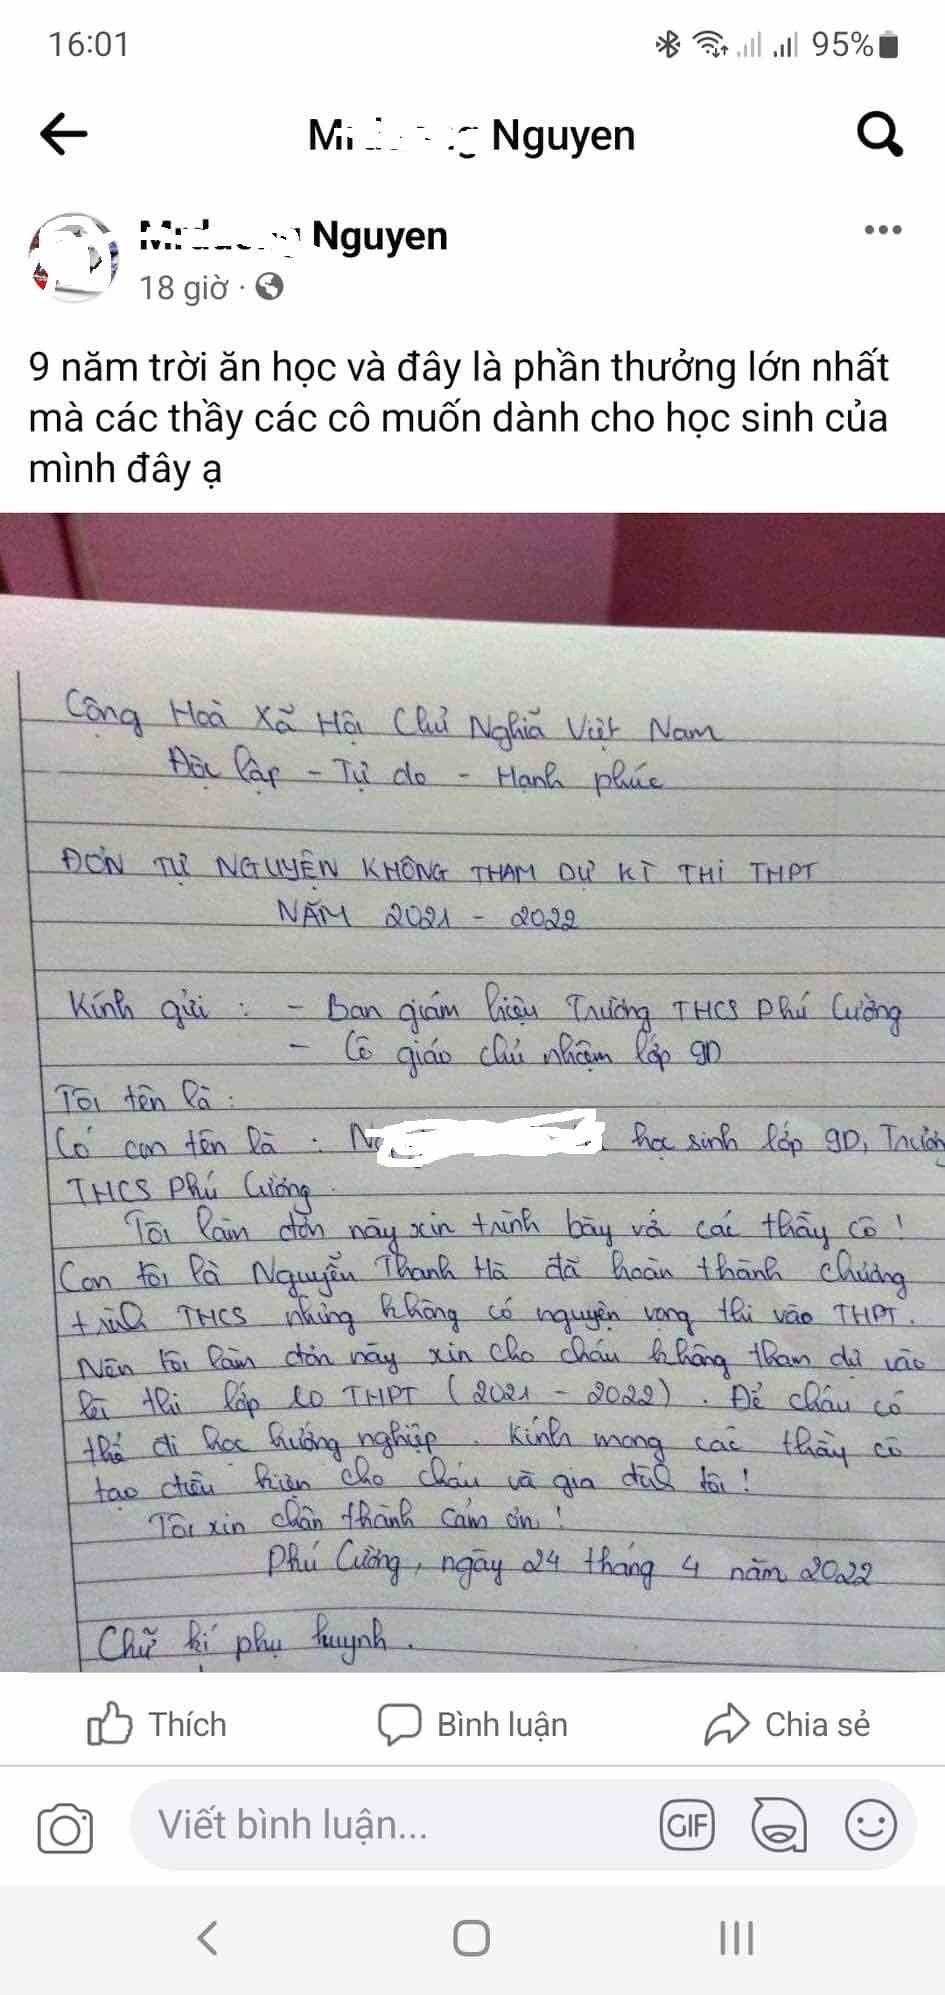 16:01
95%
Nguyen
Nguyen
18 giờ ·
9 năm trời ăn học và đây là phần thưởng lớn nhất
mà các thầy các cô muốn dành cho học sinh của
mình đây ạ
Cộng Hoà Xã Hội Chủ Nghĩa Việt Nam
Độc lập - Tự do - Hạnh phúc
ĐƠN TỰ NGUYỆN KHÔNG THAM DỰ KÌ THI THPT
NĂM 2021 - 2022
Kính gửi : - Ban giám hiệu Trường THCS Phú Cường
- Cô giáo chủ nhiệm lớp 9D
Tôi tên là :
Có con tên là : học sinh lớp 9D, Trường
THCS Phú Cường.
Tôi làm đơn này xin trình bày với các thầy cô !
Con tôi là Nguyễn Thanh Hà đã hoàn thành chương
trình THCS nhưng không có nguyện vọng thi vào THPT.
Nên tôi làm đơn này xin cho cháu không tham dự vào
kì thi lớp 10 THPT (2021 - 2022). Để cháu có
thể đi học hướng nghiệp. Kính mong các thầy cô
tạo điều kiện cho cháu và gia đình tôi !
Tôi xin chân thành cảm ơn !
Phú Cường, ngày 24 tháng 4 năm 2022
Chữ kí phụ huynh.
Thích
Bình luận
Chia sẻ
Viết bình luận...
GIF